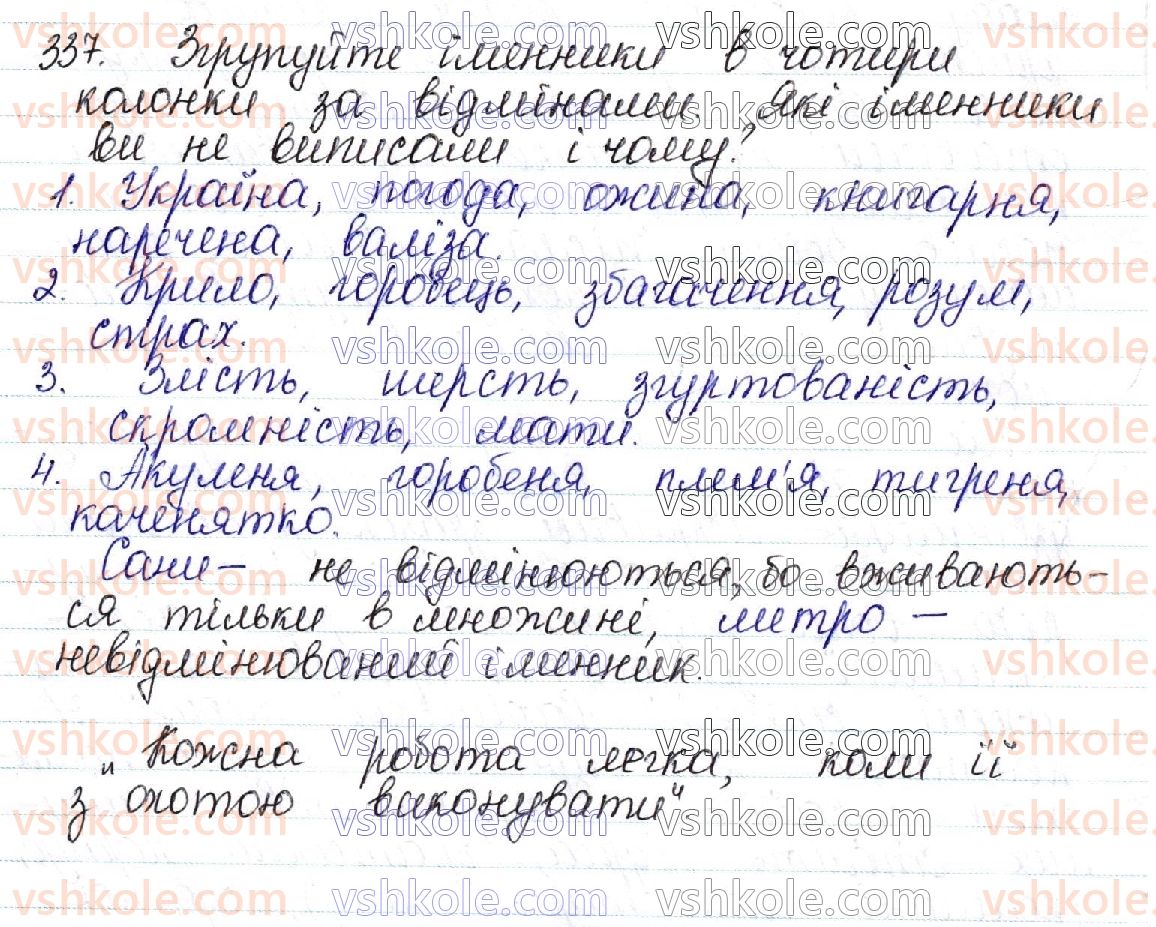 337. Згрупуйте іменники в чотири
колонки за відмінами. Які іменники
ви не виписали і чому?
1. Україна, погода, ожина, книгарня,
наречена, валіза.
2. Крило, горобець, збагачення, розум,
страх.
3. Злість, шерсть, згуртованість,
скромність, мати.
4. Акуленя, горобеня, плем'я, тигреня,
каченятко.
Сани – не відмінюються, бо вживають-
ся тільки в множині, метро –
невідмінюваний іменник.
„Кожна робота легка, коли її
з охотою виконувати"